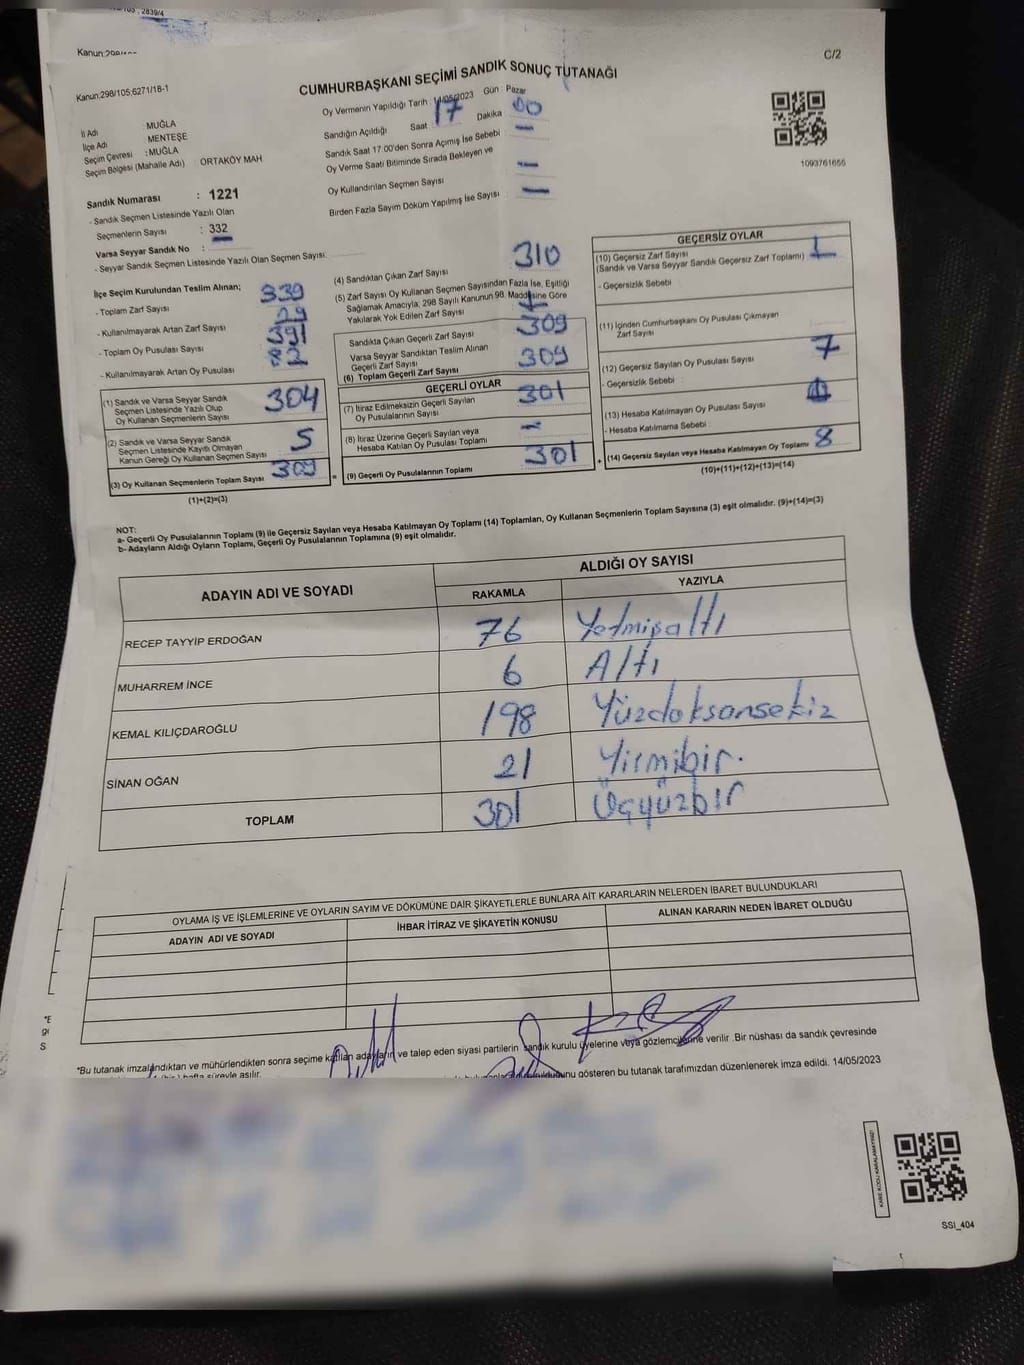 C/2
Kanun;298/105;6271/18-1
CUMHURBAŞKANI SEÇİMİ SANDIK SONUÇ TUTANAĞI
Oy Vermenin Yapıldığı Tarih : 14/05/2023 Gün : Pazar
İl Adı : MUĞLA
İlçe Adı : MENTEŞE
Seçim Çevresi : MUĞLA
Seçim Bölgesi (Mahalle Adı) ORTAKÖY MAH.
Sandığın Açıldığı Saat 17 Dakika 00
Sandık Saat 17:00'den Sonra Açılmış İse Sebebi : -
Oy Verme Saati Bitiminde Sırada Bekleyen ve
Oy Kullandırılan Seçmen Sayısı -
Birden Fazla Sayım Döküm Yapılmış İse Sayısı -
1093761656
Sandık Numarası : 1221
- Sandık Seçmen Listesinde Yazılı Olan
Seçmenlerin Sayısı : 332
Varsa Seyyar Sandık No :
- Seyyar Sandık Seçmen Listesinde Yazılı Olan Seçmen Sayısı:
İlçe Seçim Kurulundan Teslim Alınan;
- Toplam Zarf Sayısı 339
- Kullanılmayarak Artan Zarf Sayısı
- Toplam Oy Pusulası Sayısı 391
- Kullanılmayarak Artan Oy Pusulası 82
(1) Sandık ve Varsa Seyyar Sandık
Seçmen Listesinde Yazılı Olup
Oy Kullanan Seçmenlerin Sayısı 304
(2) Sandık ve Varsa Seyyar Sandık
Seçmen Listesinde Kayıtlı Olmayan
Kanun Gereği Oy Kullanan Seçmen Sayısı 5
(3) Oy Kullanan Seçmenlerin Toplam Sayısı 309
(1)+(2)=(3)
(4) Sandıktan Çıkan Zarf Sayısı 310
(5) Zarf Sayısı Oy Kullanan Seçmen Sayısından Fazla İse, Eşitliği
Sağlamak Amacıyla, 298 Sayılı Kanunun 98. Maddesine Göre
Yakılarak Yok Edilen Zarf Sayısı 1
Sandıkta Çıkan Geçerli Zarf Sayısı 309
Varsa Seyyar Sandıktan Teslim Alınan
Geçerli Zarf Sayısı
(6) Toplam Geçerli Zarf Sayısı 309
GEÇERLİ OYLAR
(7) İtiraz Edilmeksizin Geçerli Sayılan
Oy Pusulalarının Sayısı 301
(8) İtiraz Üzerine Geçerli Sayılan veya
Hesaba Katılan Oy Pusulası Toplamı -
(9) Geçerli Oy Pusulalarının Toplamı 301
GEÇERSİZ OYLAR
(10) Geçersiz Zarf Sayısı 1
(Sandık ve Varsa Seyyar Sandık Geçersiz Zarf Toplamı)
- Geçersizlik Sebebi
(11) İçinden Cumhurbaşkanı Oy Pusulası Çıkmayan
Zarf Sayısı
(12) Geçersiz Sayılan Oy Pusulası Sayısı 7
- Geçersizlik Sebebi
(13) Hesaba Katılmayan Oy Pusulası Sayısı
- Hesaba Katılmama Sebebi
(14) Geçersiz Sayılan veya Hesaba Katılmayan Oy Toplamı 8
(10)+(11)+(12)+(13)=(14)
NOT:
a- Geçerli Oy Pusulalarının Toplamı (9) ile Geçersiz Sayılan veya Hesaba Katılmayan Oy Toplamı (14) Toplamları, Oy Kullanan Seçmenlerin Toplam Sayısına (3) eşit olmalıdır. (9)+(14)=(3)
b- Adayların Aldığı Oyların Toplamı, Geçerli Oy Pusulalarının Toplamına (9) eşit olmalıdır.
ADAYIN ADI VE SOYADI ALDIĞI OY SAYISI
RAKAMLA YAZIYLA
RECEP TAYYİP ERDOĞAN 76 Yetmişaltı
MUHARREM İNCE 6 Altı
KEMAL KILIÇDAROĞLU 198 Yüzdoksansekiz
SİNAN OĞAN 21 Yirmibir.
TOPLAM 301 Üçyüzbir
OYLAMA İŞ VE İŞLEMLERİNE VE OYLARIN SAYIM VE DÖKÜMÜNE DAİR ŞİKAYETLERLE BUNLARA AİT KARARLARIN NELERDEN İBARET BULUNDUKLARI
ADAYIN ADI VE SOYADI İHBAR İTİRAZ VE ŞİKAYETİN KONUSU ALINAN KARARIN NEDEN İBARET OLDUĞU
*Bu tutanak imzalandıktan ve mühürlendikten sonra seçime katılan adayların ve talep eden siyasi partilerin sandık kurulu üyelerine veya gözlemcilerine verilir .Bir nüshası da sandık çevresinde
hafta süreyle asılır. gösteren bu tutanak tarafımızdan düzenlenerek imza edildi. 14/05/2023
KARE KODU KARALAMAYINIZ!
SSI_404